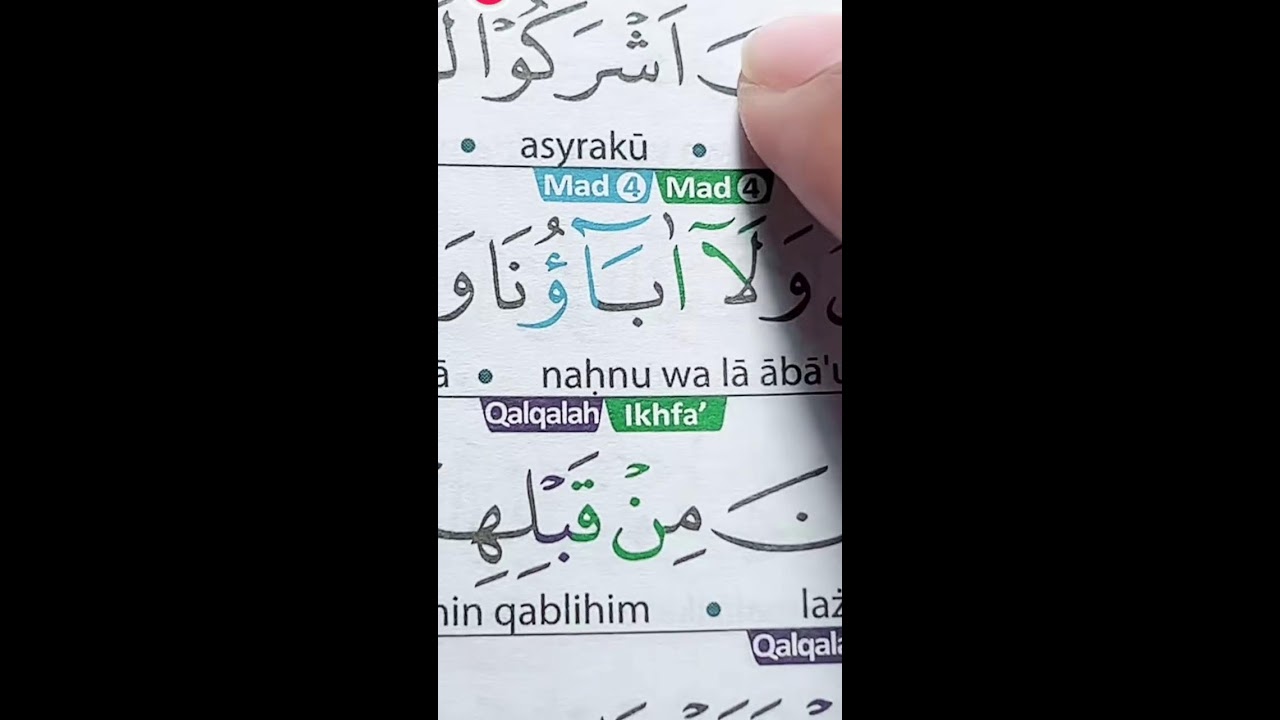 اَشْرَكُوْا
• asyrakū •
Mad 4 Mad 4
وَلَآ اٰبَاۤؤُنَا وَ
ā • naḥnu wa lā ābā'u
Qalqalah Ikhfa’
نَ مِنْ قَبْلِهِ
min qablihim • laż
Qalqala